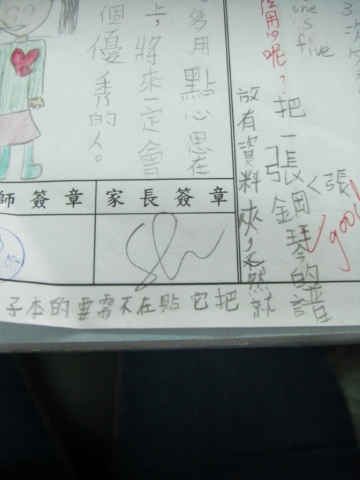 five
用心呢?
把一張鋼琴的譜
放有資料夾,不然就
把它貼在不需要的本子
good
多用點心思在
上,將來一定會
個優秀的人。
師簽章
家長簽章